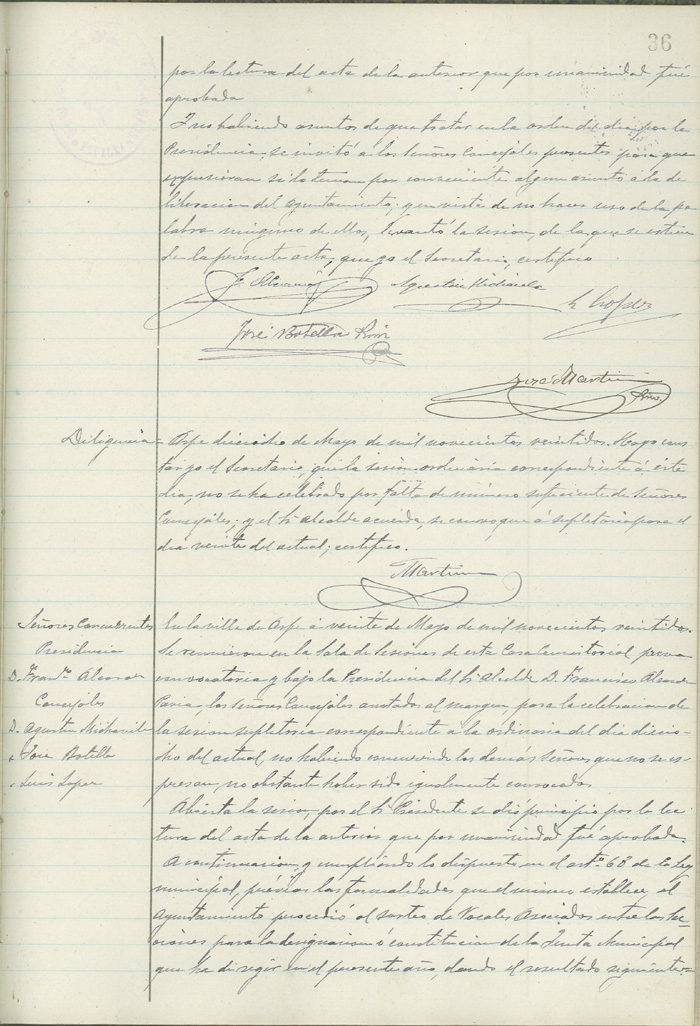 36
por la lectura del acta de la anterior que por unanimidad fué
aprobada
Y no habiendo asuntos de que tratar en la orden del dia, por la
Presidencia, se invitó a los Señores Concejales presentes para que
expusieran si lo tenian por consecuente algun asunto á la de
liberacion del Ayuntamiento; y en vista de no hacer uso de la pa
labra ninguno de ellos, levantó la sesion, de la que se extien
de la presente acta, que yo el Secretario, certifico.
F. Alcaraz Agustin Michavila
L. Lopez
José Botella Ruiz
José Martin
Srio.
Diligencia = Aspe dieciocho de Mayo de mil novecientos veintidos. Hago cons
tar yo el Secretario, que la sesion ordinaria correspondiente á éste
dia, no se ha celebrado por falta de número suficiente de Señores
Concejales; y el Sr Alcalde acuerda, se convoque á supletoria para el
dia veinte del actual; certifico.
Martin
Señores Concurrentes
Presidencia
D. Franco Alcaraz
Concejales
D. Agustin Michavila
" José Botella
" Luis Lopez
En la villa de Aspe á veinte de Mayo de mil novecientos veintidos.
Se reunieron en la Sala de Sesiones de esta Casa Consistorial previa
convocatoria y bajo la Presidencia del Sr Alcalde D. Francisco Alcaraz
los Señores Concejales anotados al margen, para la celebracion de
la sesion supletoria correspondiente a la ordinaria del dia diecio-
cho del actual, no habiendo concurrido los demás Señores que no se ex-
presan, no obstante haber sido igualmente convocados.
Abierta la sesion, por el Sr Presidente se dió principio por la lec
tura del acta de la anterior que por unanimidad fué aprobada.
A continuacion, y cumpliendo lo dispuesto en el arto 68 de la Ley
municipal, prévias las formalidades que el mismo establece, el
Ayuntamiento procedió al sorteo de Vocales Asociados entre las Sec-
ciones para la designacion ó constitucion de la Junta Municipal
que ha de regir en el presente año, dando el resultado siguiente:-